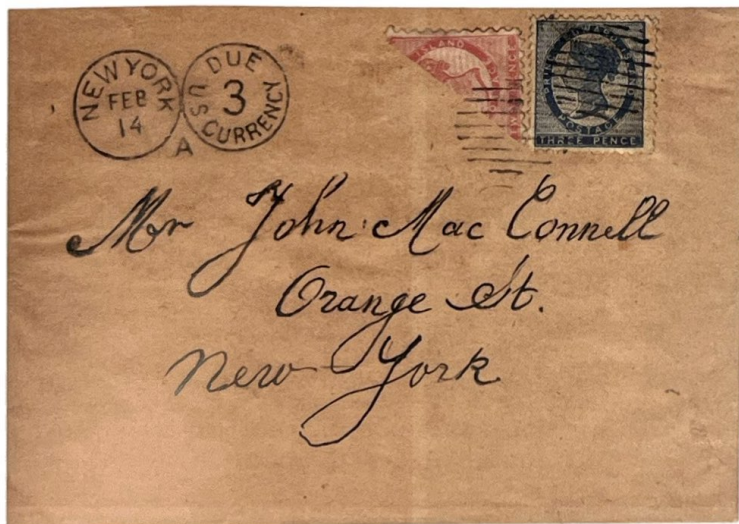 NEW YORK
FEB
14
DUE
3
U S CURRENCY
A
ISLAND
PENCE
POSTAGE
THREE PENCE
Mr John Mac Connell
Orange St.
New York